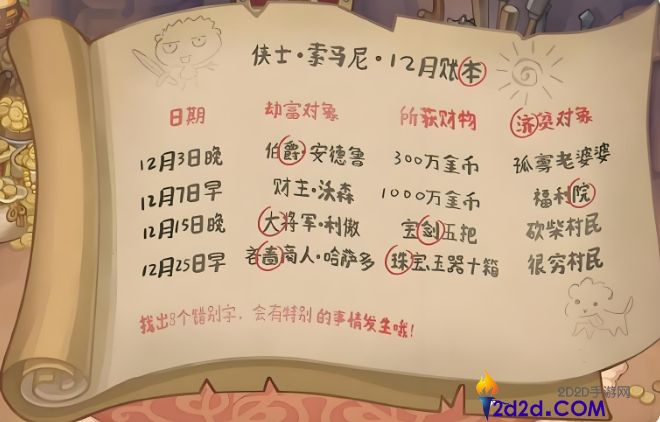 侠士·索马尼·12月账本
日期 劫富对象 所获财物 济贫对象
12月3日晚 伯爵·安德鲁 300万金币 孤寡老婆婆
12月7日早 财主·沃森 1000万金币 福利院
12月15日晚 大将军·利傲 宝剑五把 砍柴村民
12月25日早 吝啬商人·哈萨多 珠宝玉器十箱 很穷村民
找出8个错别字，会有特别的事情发生哦！
2D2D手游网
2d2d.COM